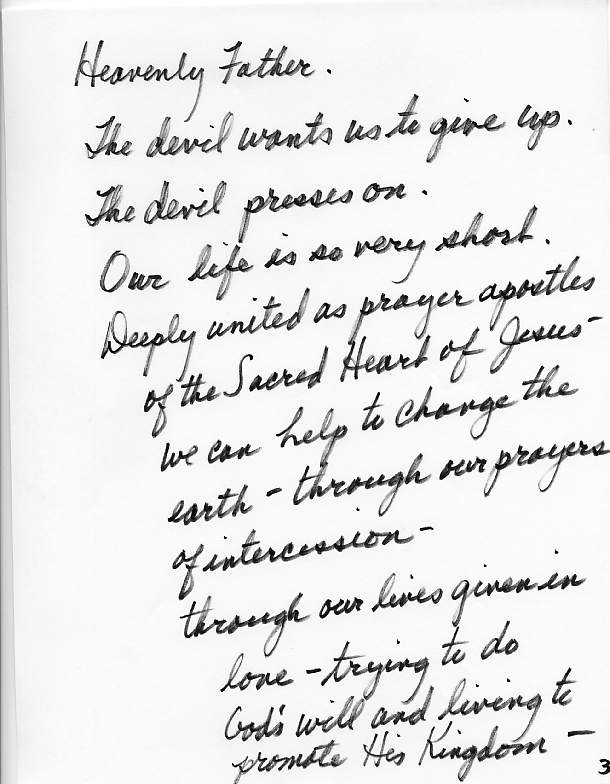 Heavenly Father.
The devil wants us to give up.
The devil presses on.
Our life is so very short.
Deeply united as prayer apostles
of the Sacred Heart of Jesus -
we can help to change the
earth - through our prayers
of intercession -
through our lives given in
love - trying to do
God's will and living to
promote His Kingdom -
3